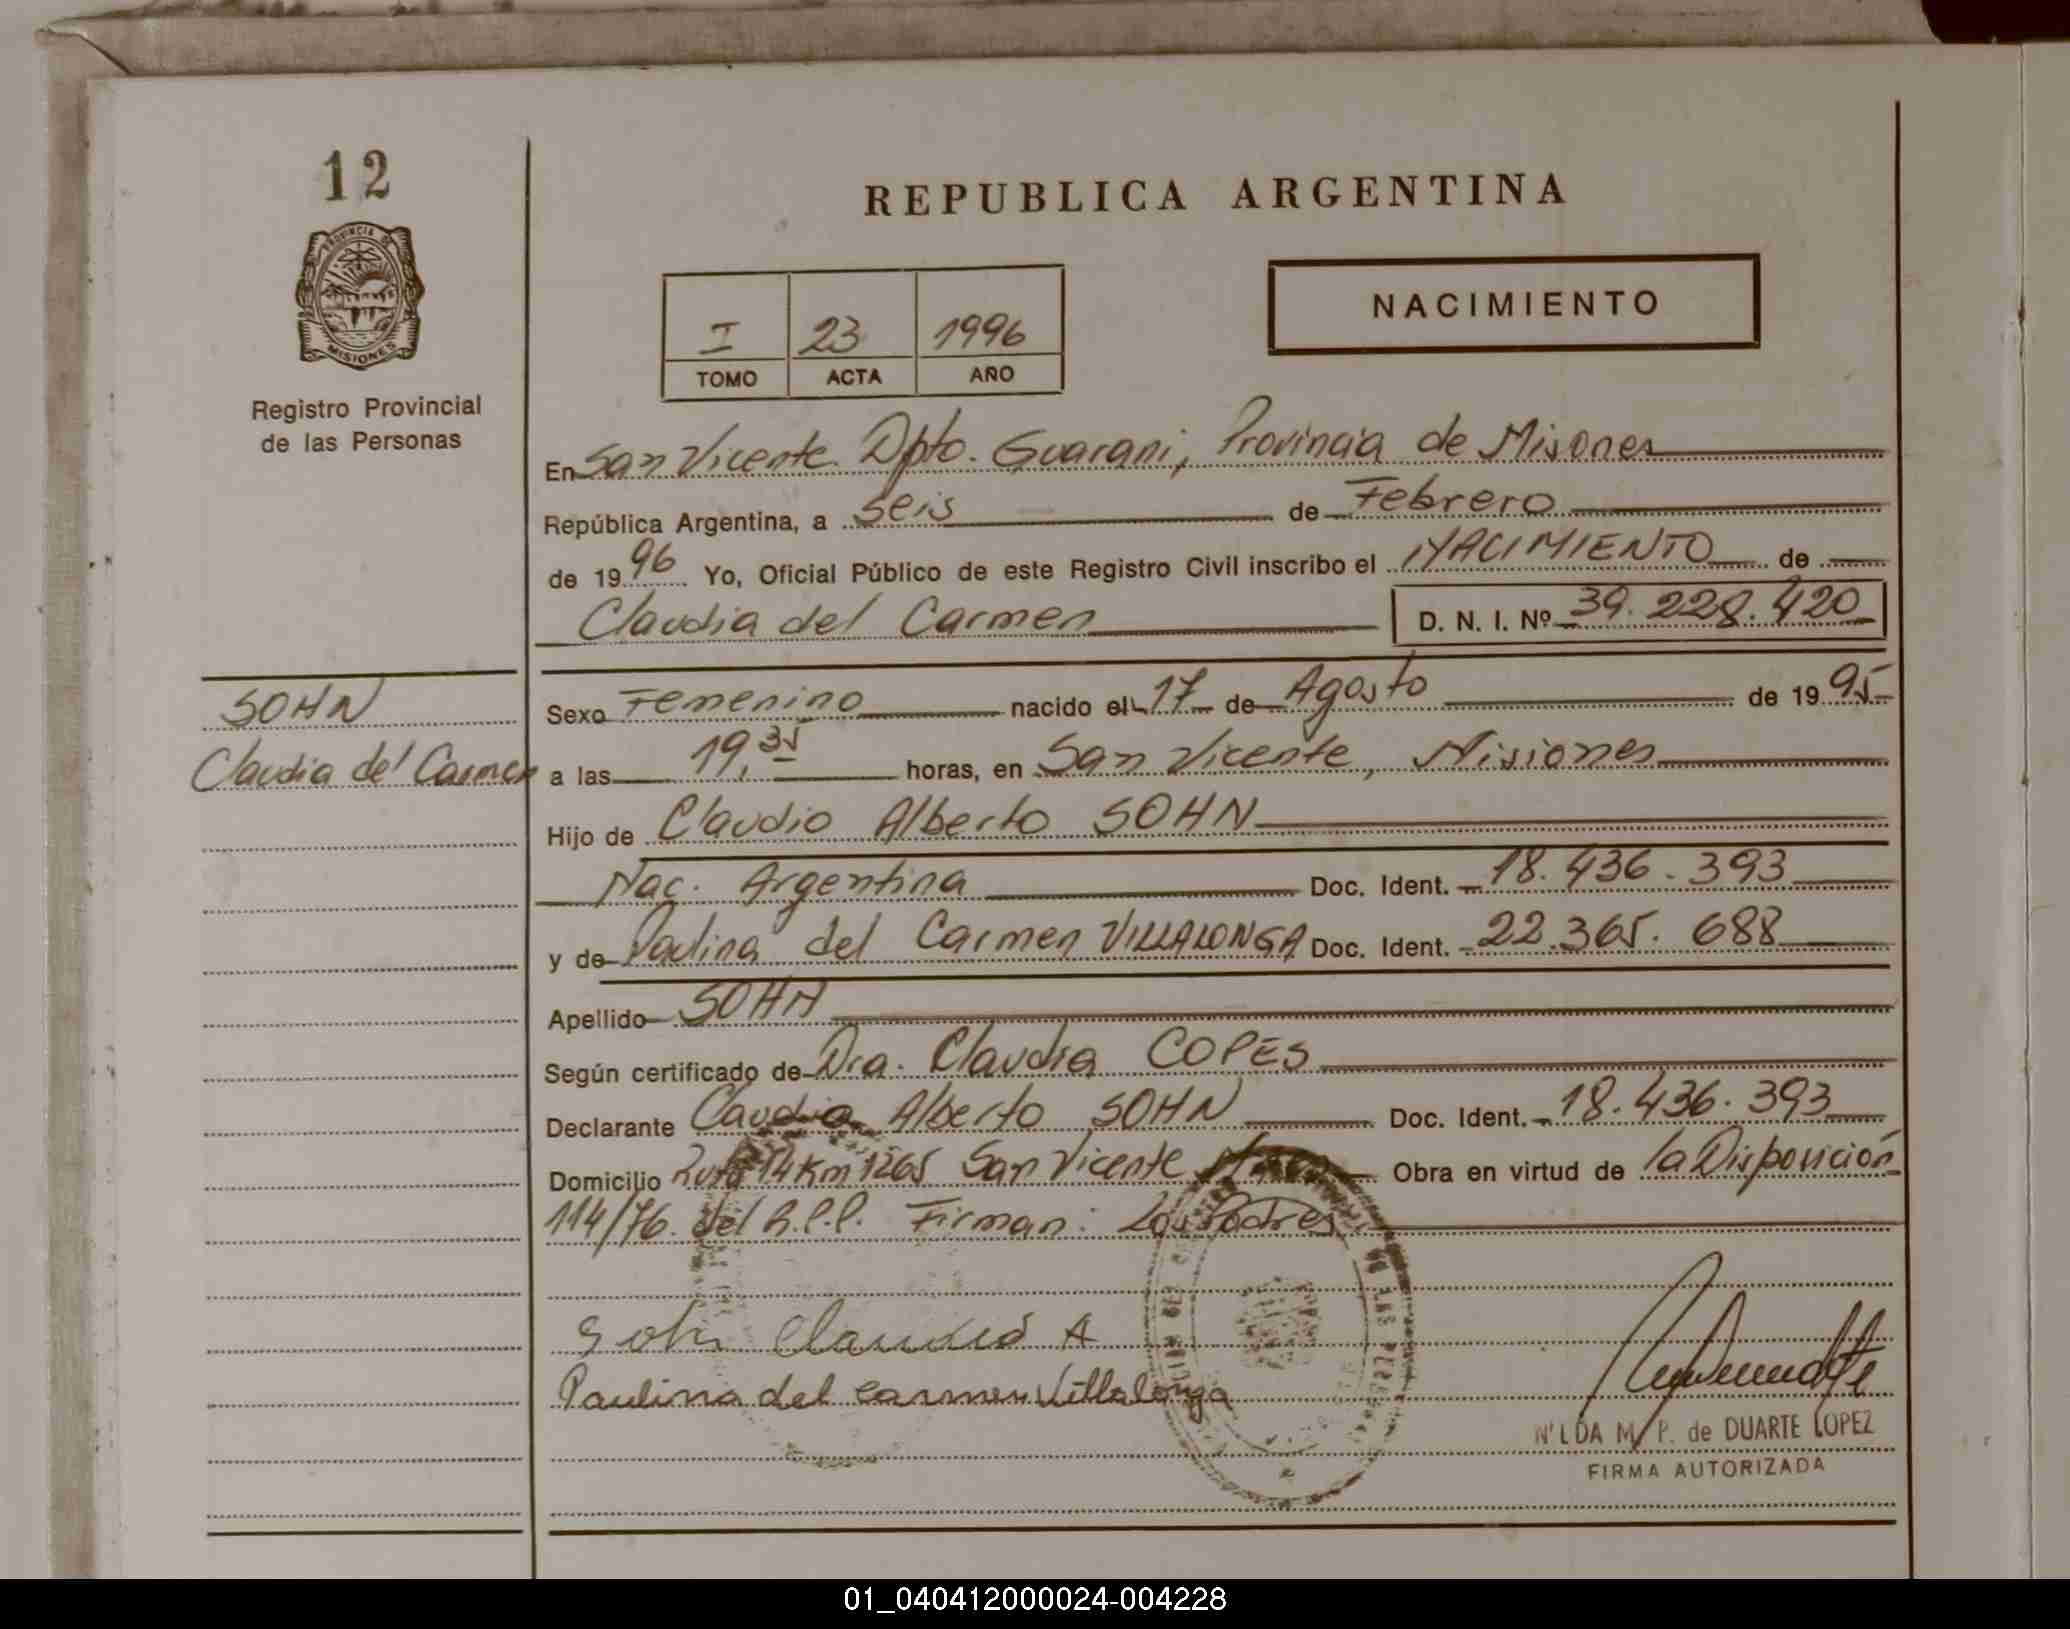 12
PROVINCIA DE
MISIONES
Registro Provincial
de las Personas
REPUBLICA ARGENTINA
NACIMIENTO
I 23 1996
TOMO ACTA AÑO
En San Vicente Dpto. Guarani, Provincia de Misiones
República Argentina, a seis de Febrero
de 1996 Yo, Oficial Público de este Registro Civil inscribo el NACIMIENTO de
Claudia del Carmen D. N. I. Nº 39.228.420
SOHN
Claudia del Carmen
Sexo Femenino nacido el 17 de Agosto de 1995
a las 19,35 horas, en San Vicente, Misiones
Hijo de Claudio Alberto SOHN
Nac. Argentina Doc. Ident. 18.436.393
y de Paulina del Carmen VILLALONGA Doc. Ident. 22.365.688
Apellido SOHN
Según certificado de Dra. Claudia COPES
Declarante Claudio Alberto SOHN Doc. Ident. 18.436.393
Domicilio Ruta 14 Km 1265 San Vicente Obra en virtud de la Disposición
114/76. del R.P.P. Firman: Los Padres
Sohn Claudio A
Paulina del Carmen Villalonga
NILDA M. P. de DUARTE LOPEZ
FIRMA AUTORIZADA
01_040412000024-004228